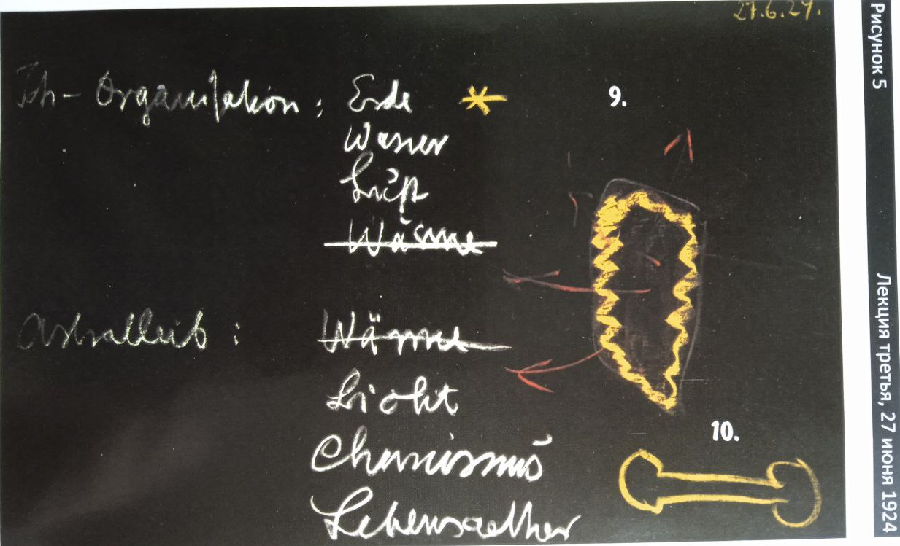 27.6.24.
Ich-Organisation: Erde
9.
Wasser
Luft
Wärme
Astralleib: Wärme
Licht
10.
Chemismus
Lebensaether
Рисунок 5
Лекция третья, 27 июня 1924